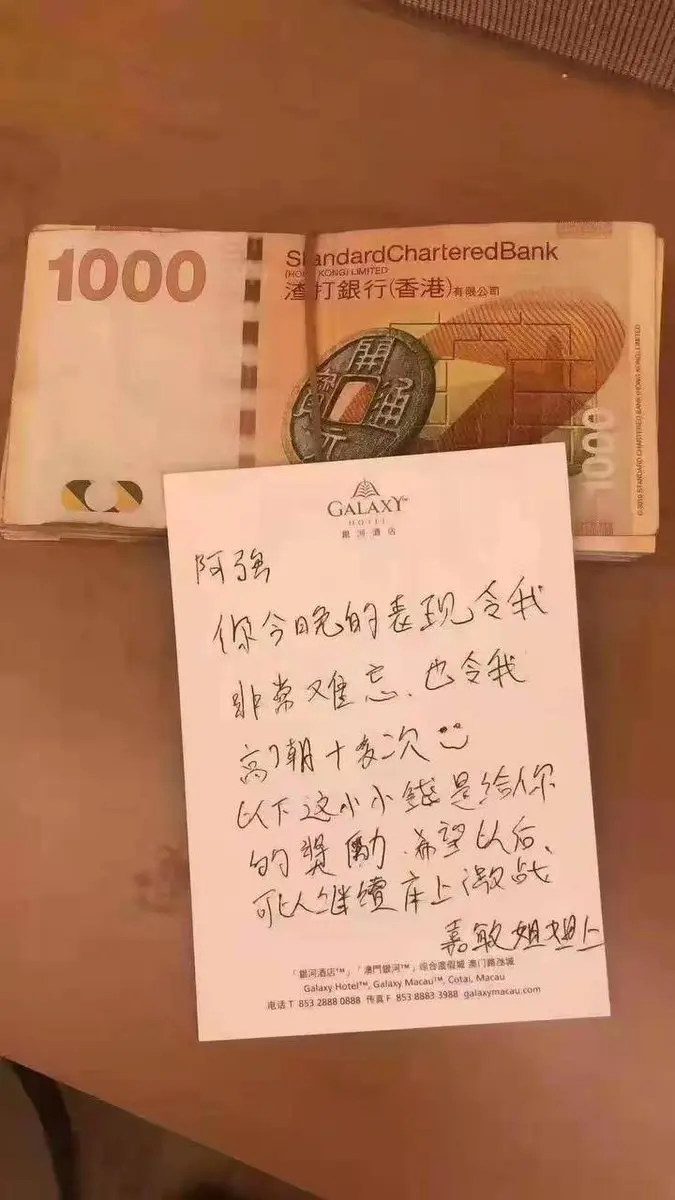 1000
StandardCharteredBank
(HONG KONG) LIMITED
渣打銀行(香港)有限公司
開
通
元
寳
1000
© 2010 STANDARD CHARTERED BANK (HONG KONG) LIMITED
GALAXY™
HOTEL
銀河酒店
阿强
你今晚的表现令我
非常难忘、也令我
高潮十多次
以下这小小錢是给你
的奬励、希望以后、
可以继續床上激战
嘉敏姐姐上
「銀河酒店™」「澳門銀河™」综合渡假城 澳门路氹城
Galaxy Hotel™, Galaxy Macau™, Cotai, Macau
电话 T 853 2888 0888 传真 F 853 8883 3988 galaxymacau.com